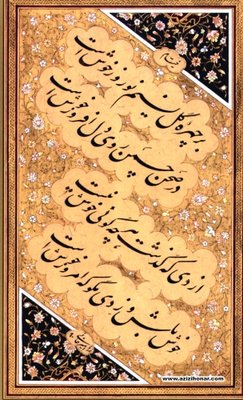 بر چهره گل نسیم نوروز خوش است
در صحن چمن روی دل افروز خوش است
از دی که گذشت هر چه گویی خوش نیست
خوش باش و ز دی مگو که امروز خوش است
www.azizihonar.com